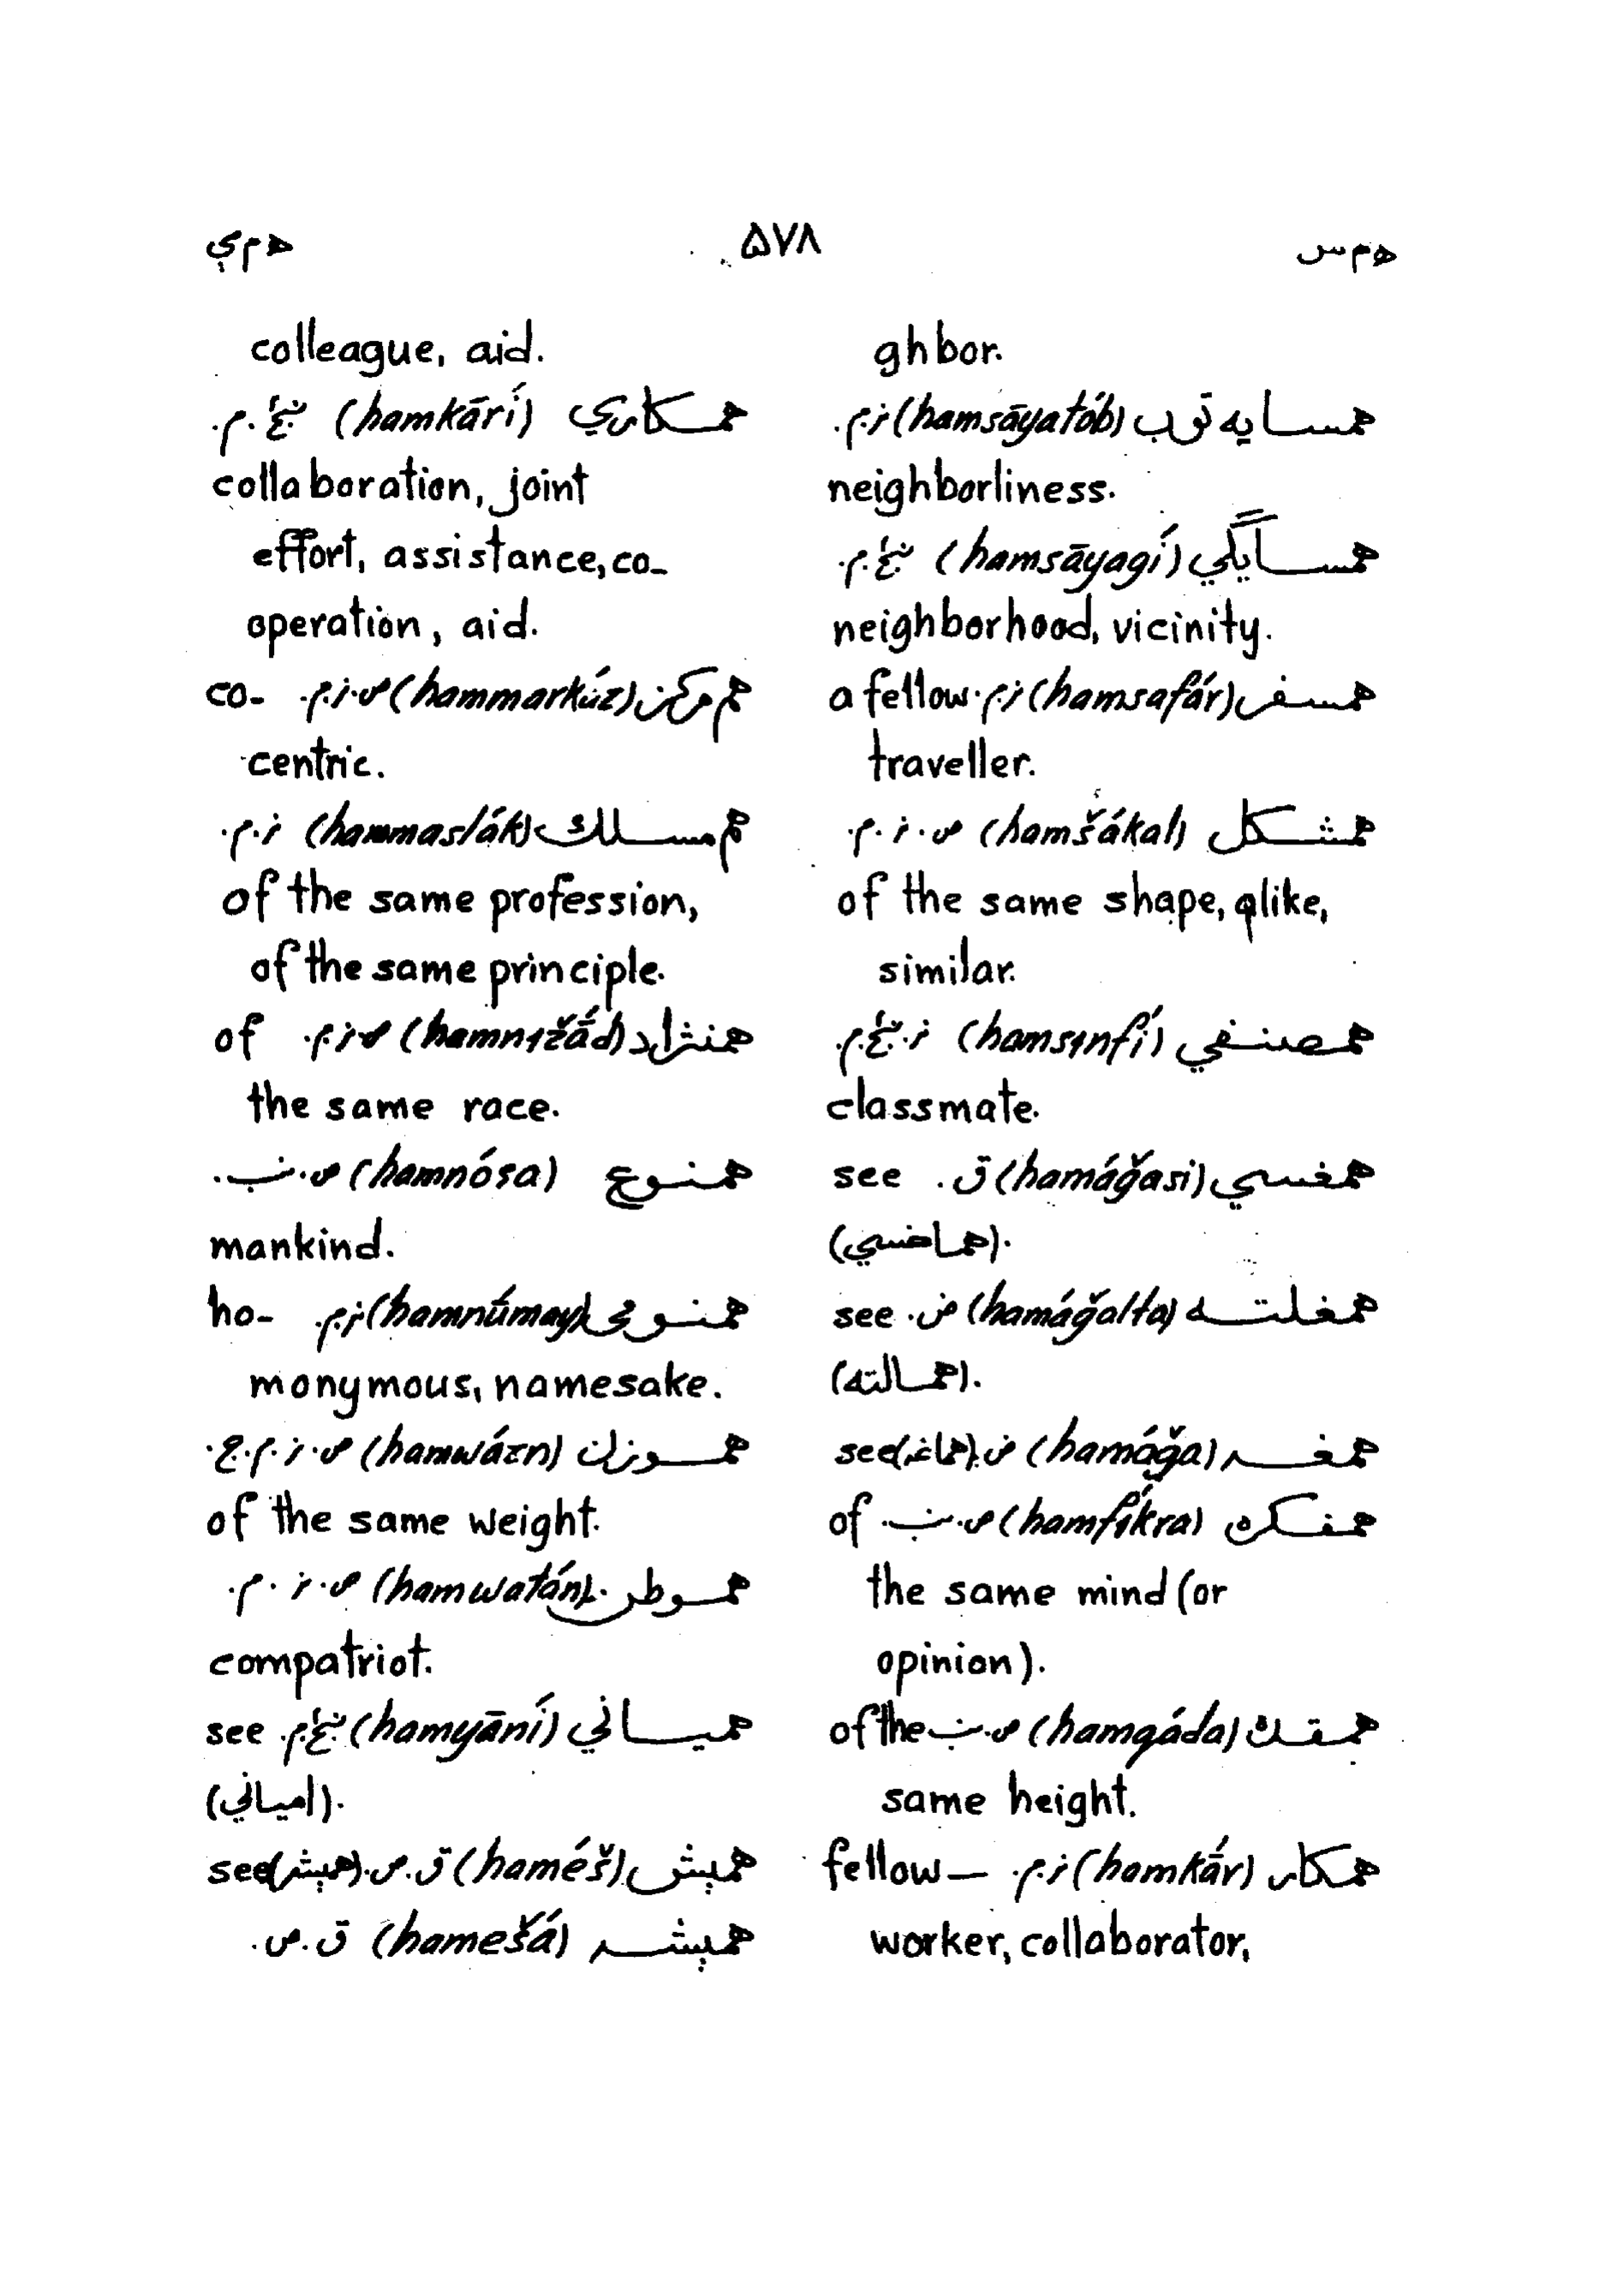 ه م س ۵۷۸ ه م ي
ghbor.
همسايه توب (hamsāyatób) نر.م.
neighborliness.
همسايګي (hamsāyagí) ښځ.م.
neighborhood, vicinity.
همسفر (hamsafár) نر.م. a fellow
traveller.
همشکل (hamšákal) ص.نر.م.
of the same shape, alike,
similar.
همصنفي (hamsınfí) نر.ښځ.م.
classmate.
همغسي (hamáğasi) ق. see
(هماغسي).
همغلته (hamáğalta) ض. see
(همالته).
همغه (hamáğa) ض. (هماغه) see
همفکره (hamfíkra) ص. of
the same mind (or
opinion).
همقده (hamqáda) ص. of the
same height.
همکار (hamkár) نر.م. fellow-
worker, collaborator,
colleague, aid.
همکاري (hamkārí) ښځ.م.
collaboration, joint
effort, assistance, co-
operation, aid.
هم مرکز (hammarkúz) ص.نر.م. co-
centric.
هم مسلک (hammaslák) نر.م.
of the same profession,
of the same principle.
همنژاد (hamnıžā́d) ص.نر.م. of
the same race.
همنوع (hamnósa) ص.
mankind.
همنومی (hamnúmay) نر.م. ho-
monymous, namesake.
هموزن (hamwázn) ص.نر.م.ج.
of the same weight.
هموطن (hamwatán) ص.نر.م.
compatriot.
همياني (hamyāní) ښځ.م. see
(امياني).
همېش (haméš) ق.ص. (همېشه) see
همېشه (hamešá) ق.ص.